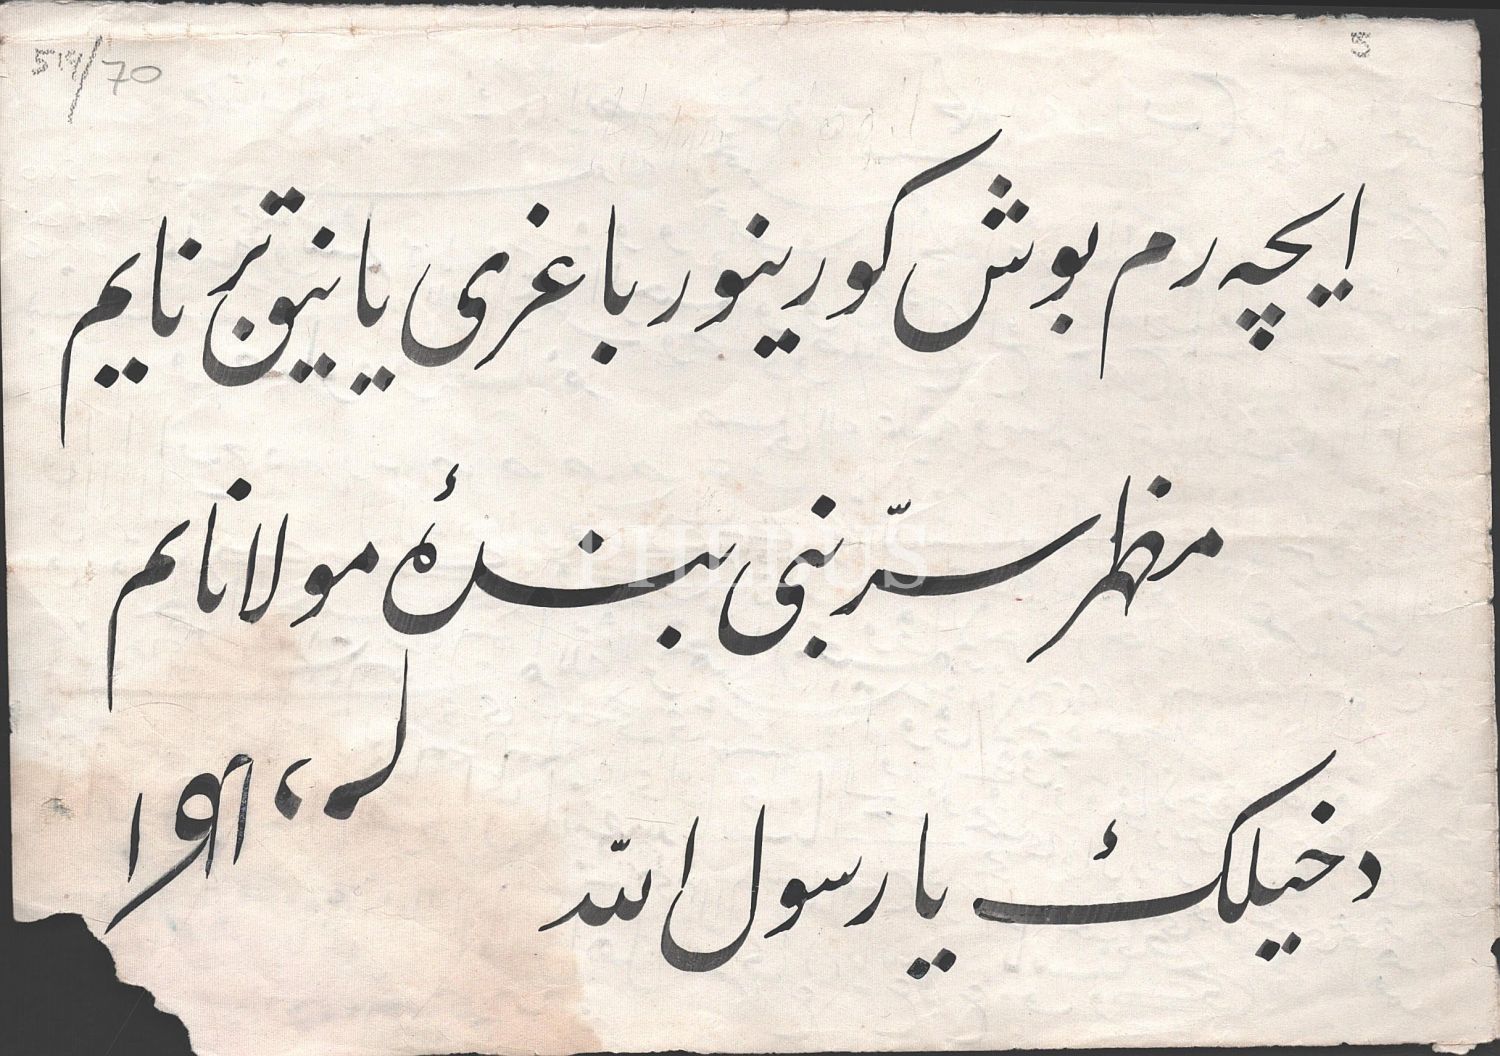 519/70
5
ایچه رم بوش کورینور باغری یانیق تر نایم
مظهر سرّ نبی بندهٔ مولانا یم
دخیلك یا رسول الله
١٩١
PHEBUS